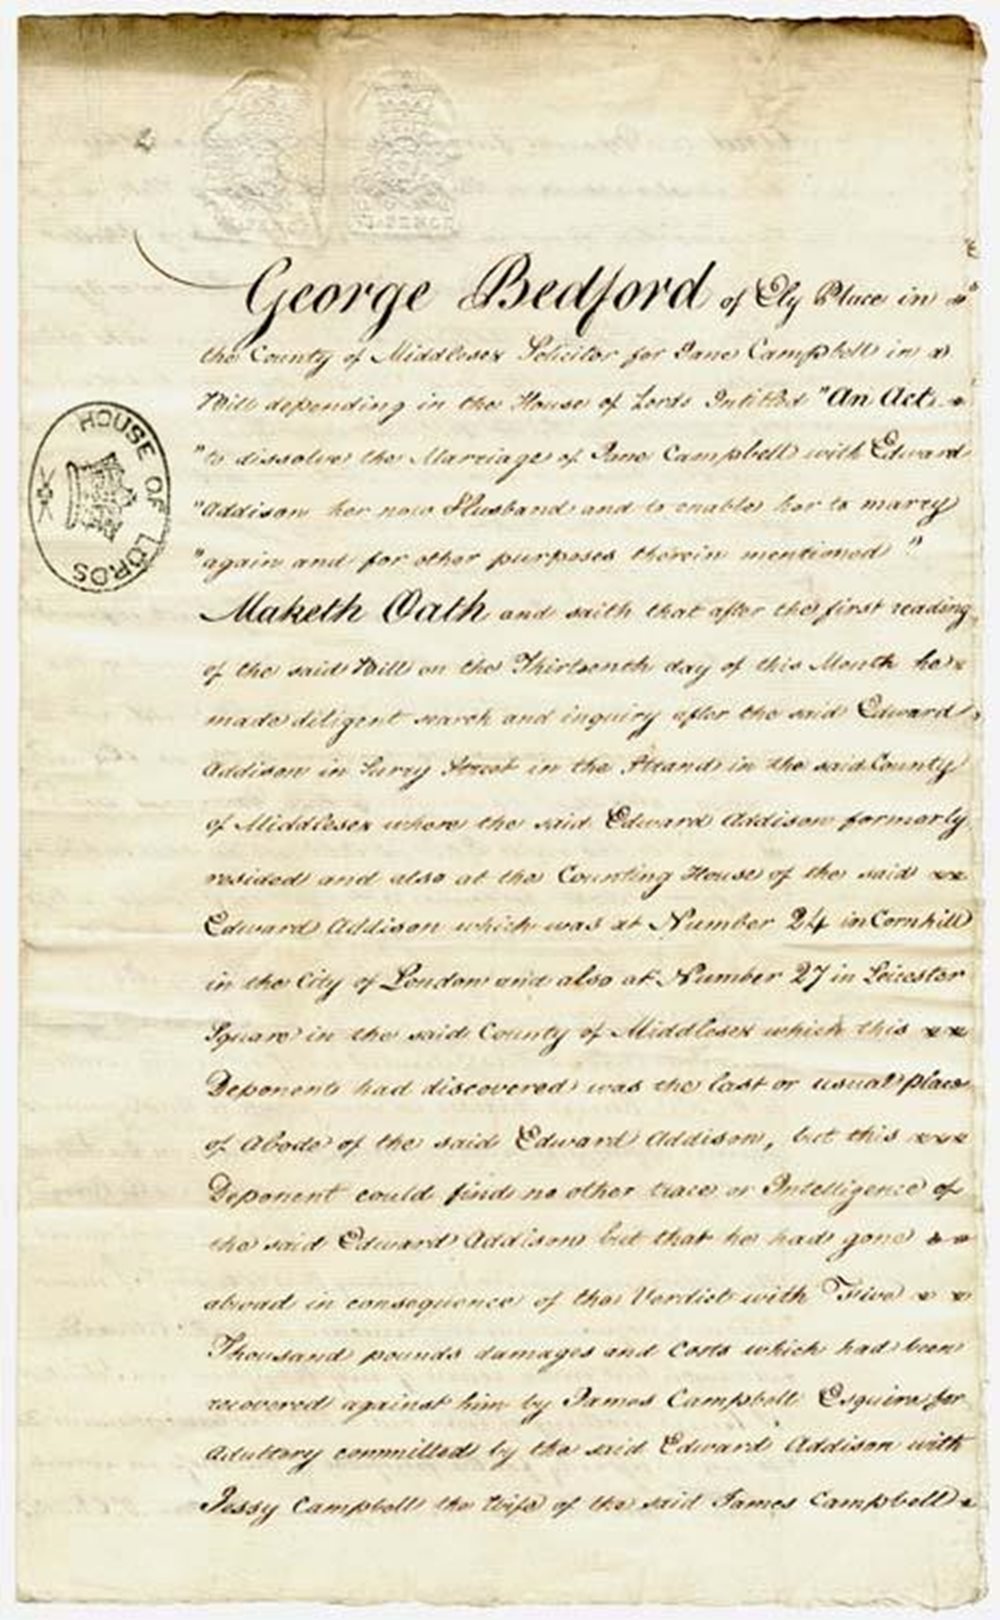 George Bedford of Ely Place in
the County of Middlesex Solicitor for Jane Campbell in a
Bill depending in the House of Lords Intitled "An Act
"to dissolve the Marriage of Jane Campbell with Edward
"Addison her now Husband and to enable her to marry
"again and for other purposes therein mentioned"
Maketh Oath and saith that after the first reading
of the said Bill on the Thirteenth day of this Month he
made diligent search and inquiry after the said Edward
Addison in Surry Street in the Strand in the said County
of Middlesex where the said Edward Addison formerly
resided and also at the Counting House of the said
Edward Addison which was at Number 24 in Cornhill
in the City of London and also at Number 27 in Leicester
Square in the said County of Middlesex which this
Deponent had discovered was the last or usual place
of Abode of the said Edward Addison, but this
Deponent could find no other trace or Intelligence of
the said Edward Addison but that he had gone
abroad in consequence of the Verdict with Five
Thousand pounds damages and Costs which had been
recovered against him by James Campbell Esquire for
Adultery committed by the said Edward Addison with
Jessy Campbell the Wife of the said James Campbell
HOUSE OF LORDS